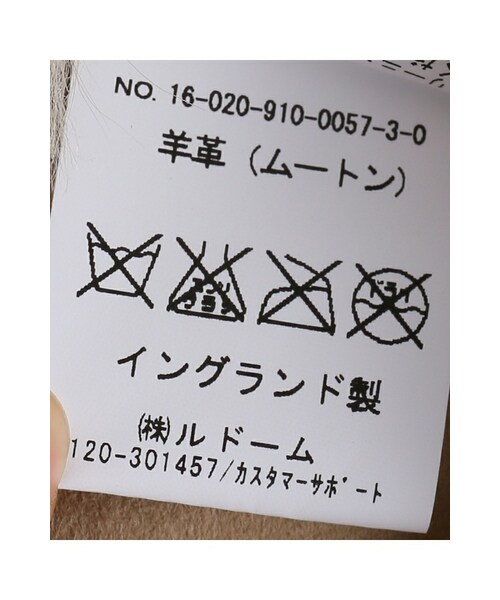 NO. 16-020-910-0057-3-0
羊革 (ムートン)
エンソ サラシ ドライ
イングランド製
(株)ルドーム
120-301457/カスタマーサポート